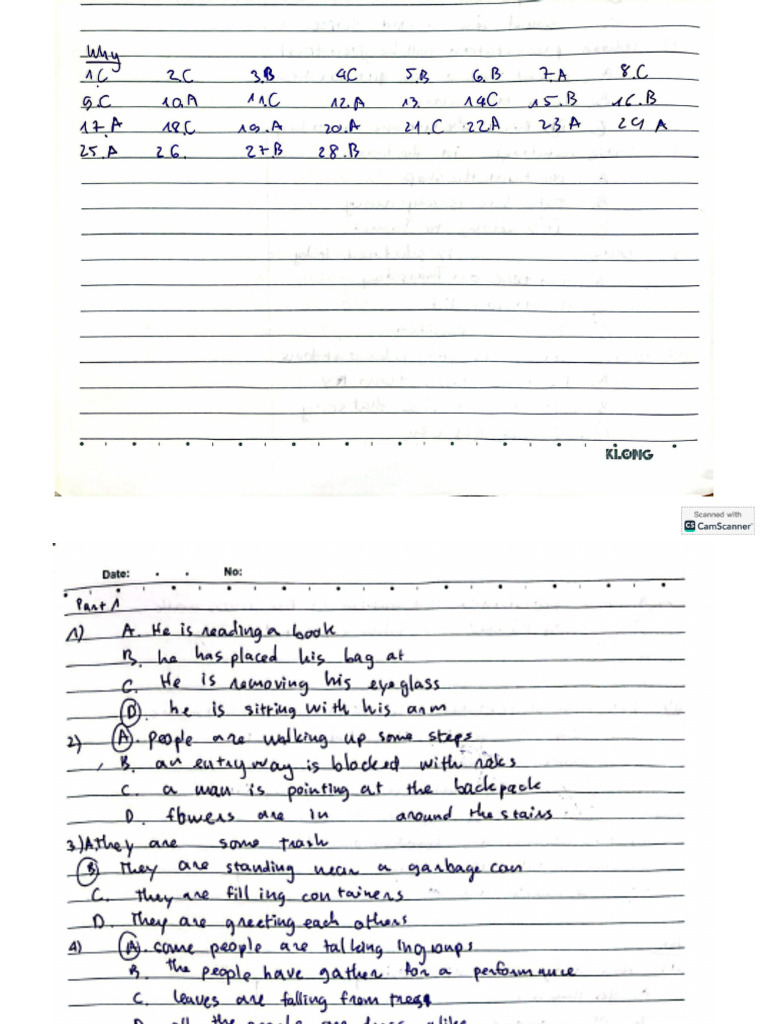 Why
1C 2.C 3.B 4C 5.B 6.B 7.A 8.C
9.C 10.A 11.C 12.A 13. 14C 15.B 16.B
17.A 18.C 19.A 20.A 21.C 22.A 23A 24 A
25.A 26. 27B 28.B
KLONG
Scanned with
CS CamScanner
Date: No:
Part 1
1) A. He is reading a book
B. he has placed his bag at
C. He is removing his eyeglass
D. he is sitting with his arm
2) A. people are walking up some steps
B. an entryway is blocked with
C. a man is pointing at the backpack
D. flowers are in around the stairs
3.)A.they are some trash
B) They are standing near a garbage can
C. they are filling containers
D. They are greeting each others
4) A. some people are talking in groups
B. the people have gather for a performance
C. leaves are falling from trees
D. all the people are alike